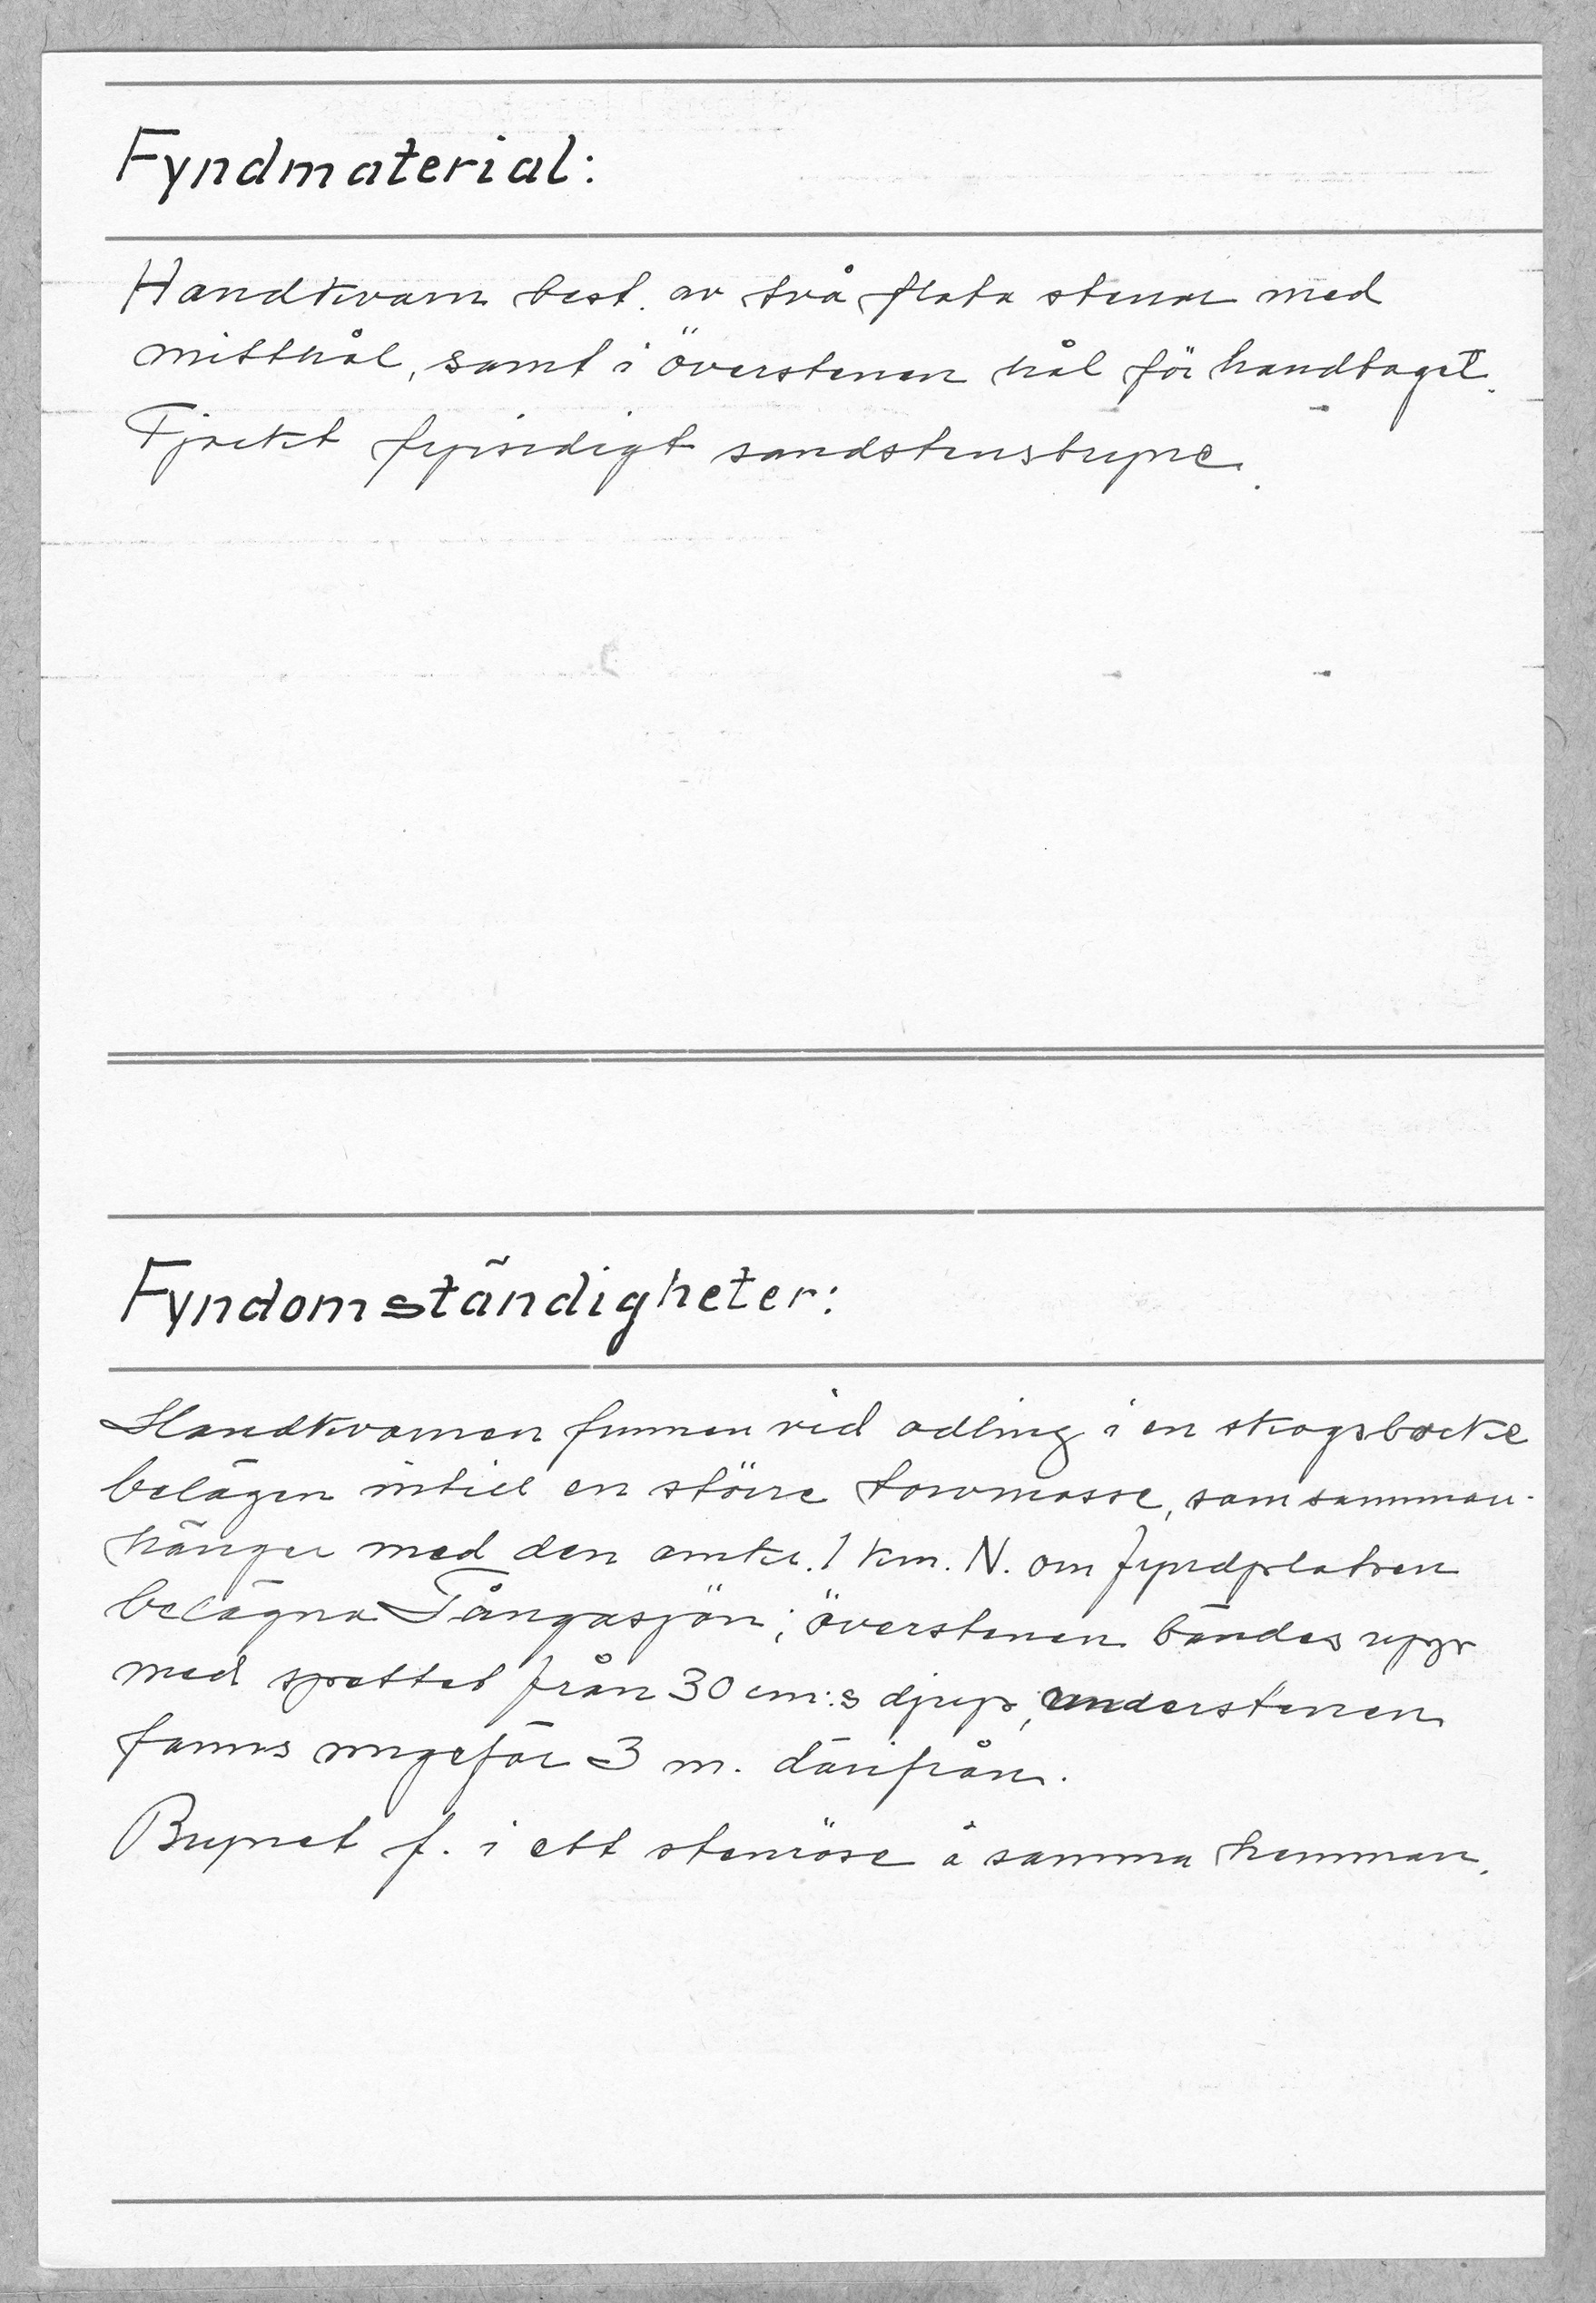 Fyndmaterial:
Handkvarn best. av två flata stenar med
mitthål, samt i överstenen hål för handtaget.
Tjockt fyrsidigt sandstensbryne.
Fyndomständigheter:
Handkvarnen funnen vid odling i en skogsbacke
belägen intill en större torvmosse, som samman-
hänger med den omkr. 1 km. N. om fyndplatsen
belägna Tångasjön; överstenen bändes upp
med spettet från 30 cm:s djup, understenen
fanns ungefär 3 m. därifrån.
Brynet f. i ett stenröse å samma hemman.